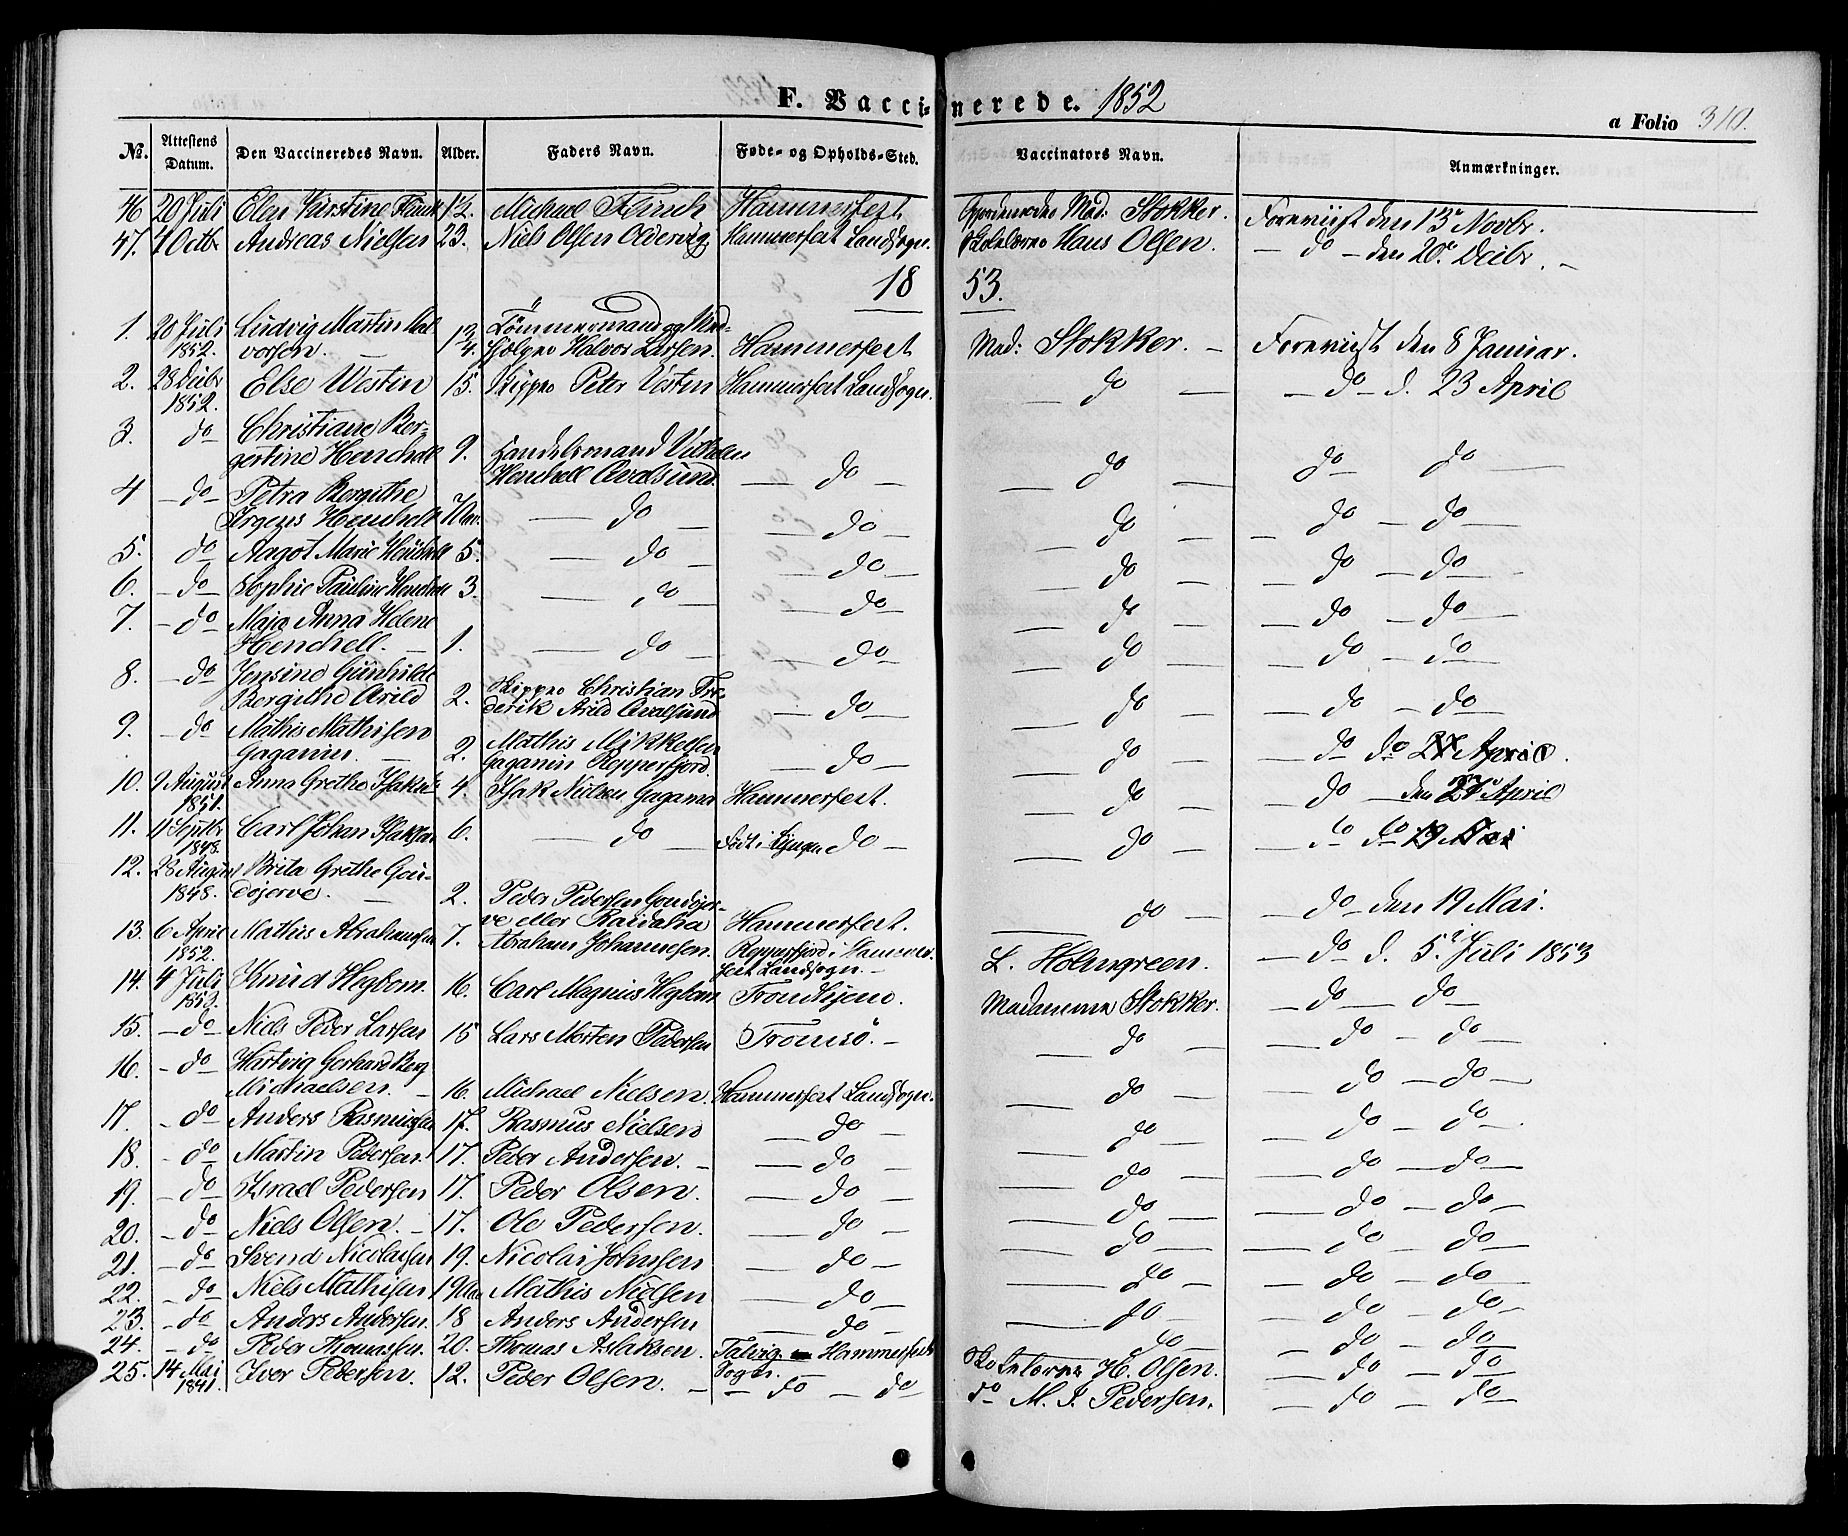 F. Vaccinerede. 1852
a Folio 310.
No. Attestens Datum. Den Vaccineredes Navn. Alder. Faders Navn. Føde- og Opholds-Sted. Vaccinators Navn. Anmærkninger.
46 20 Juli Elen Kirstine 12. Michael Hammerfest Mad: Stokker. Foreviist den 13de Novbr.
47. 4 Octbr Andreas Nielsen 23. Niels Olsen Hammerfest Landsogn. Skolelærer Hans Olsen. - do - den 20de Decbr. -
18 53.
1. 20 Juli Ludvig Martin Hal- Tømmermand og
1852. vorsen. 1 3/4. Halvor Larsen. Hammerfest Mad: Stokker. - Foreviist den 8 Januar.
2. 28 Decbr Else Westin 15. Skipper Peter Vestin Hammerfest Landsogn. do - do - d. 23 April
1852.
3. do Christiane Ber-
gertine Henchell 9. Handelsmand Vilhelm
Henchell Qvalsund - do - do do do
4 - do - Petra Bergithe
Henchell do - do - do - do - do
5. do Aagot Marie Henchell 5. do - do - do - do - do
6. - do - Sophie Pauline Henchell 3. do - do - do - do - do
7. - do Maja Anna Helene
Henchell. 1. - do - - do - - do - - do - do
8. - do Jensine Gunhilde
Bergithe Arild 2. Skipper Christian Fre-
derik Arild Qvalsund - do - - do - - do - do
9. - do Mathis Mathisen
Gaganin. 2. Mathis Mikkelsen
Gaganin Repperfjord. - do - - do - - do do April.
10. 9 August Anna Grethe 4. Isak Nielsen Gaganin Hammerfest. do - do - den 27 April
1851.
11. 11 Septbr Carl Johan Isaksen 6. - do - Født i Lyngen do - do - do do 19 Mai
1848.
12. 28 August Brita Grethe Gou-
1848. dojerve. 2. Peder Pedersen Goudojer-
ve eller Hammerfest. do - do - den 19 Mai.
13. 6 April Mathis Abrahamsen 7. Abraham Johannesen. Repperfjord i Hammer-
1852. fest Landsogn. - L. Holmgreen. - do d. 5te Juli 1853
14. 4 Juli Knud Hegbom. 16. Carl Magnus Hegbom Trondhjem. Madamme Stokker. - do - do
15. - do - Niels Peder Larsen 15 Lars Morten Pedersen Tromsö. - do - do - do
16. - do - Hartvig Gerhard Berg
Michaelsen. - 16. Michael Nielsen. Hammerfest Landsogn. do - do - do -
17. - do - Anders Rasmussen 17. Rasmus Nielsen - do - do - do - do -
18. - do - Martin Pedersen. 17. Peder Andersen. - do - do - do - do -
19. - do Israel Pedersen 17. Peder Olsen. - do - do - do - do -
20. - do - Niels Olsen. - 17. Ole Pedersen. - do - do - do - do -
21. - do Svend Nicolaisen 19. Nicolai Johnsen - do - do - do - do -
22. - do Niels Mathisen 19 Mathis Nielsen - do - do - do - do -
23. - do Anders Andersen. 18 Anders Andersen - do - do - do - do -
24. - do Peder Thomassen. 20. Thomas Aslaksen. Talvig Hammerfest
Sogn. Skolelærer H. Olsen. - do - do
25. 14 Mai Iver Pedersen. 12. Peder Olsen. - - do - do do M. J. Pedersen. - do - do
1841.